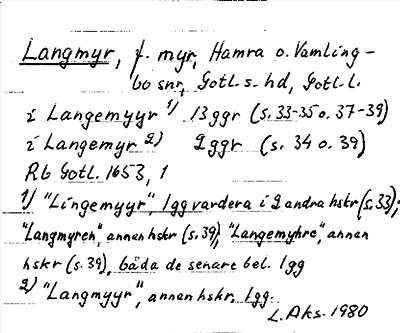 Langmyr, f. myr, Hamra o. Vamling-
bo snr, Gotl. s. hd, Gotl. l.
i Langemyyr 1) 13 ggr (s. 33-35 o. 37-39)
i Langemyr 2) 2 ggr (s. 34 o. 39)
Rb Gotl. 1653, 1
1) "Lingemyyr", 1 gg vardera i 2 andra hskr (s. 33);
"Langmyren", annan hskr (s. 39), "Langemyhre", annan
hskr (s. 39), båda de senare bel. 1 gg
2) "Langmyyr", annan hskr. 1 gg.
L. Aks. 1980